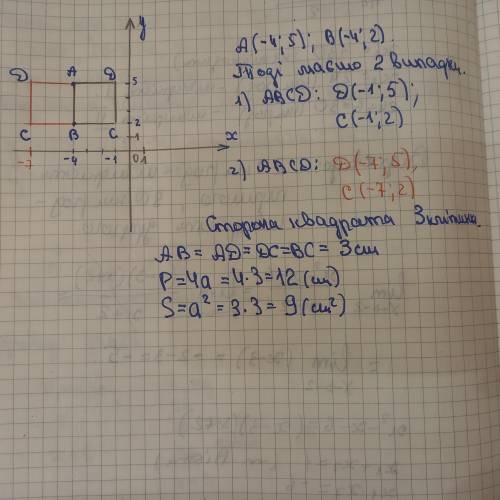 y
D A D 5
C B C 2
1
x
-7 -4 -1 0 1
A(-4; 5); B(-4; 2).
Тоді маємо 2 випадки.
1) ABCD: D(-1; 5);
C(-1; 2)
2) ABCD: D(-7; 5),
C(-7; 2)
Сторона квадрата 3 клітинки.
AB = AD = DC = BC = 3 см
P = 4a = 4·3 = 12 (см)
S = a² = 3·3 = 9 (см²)